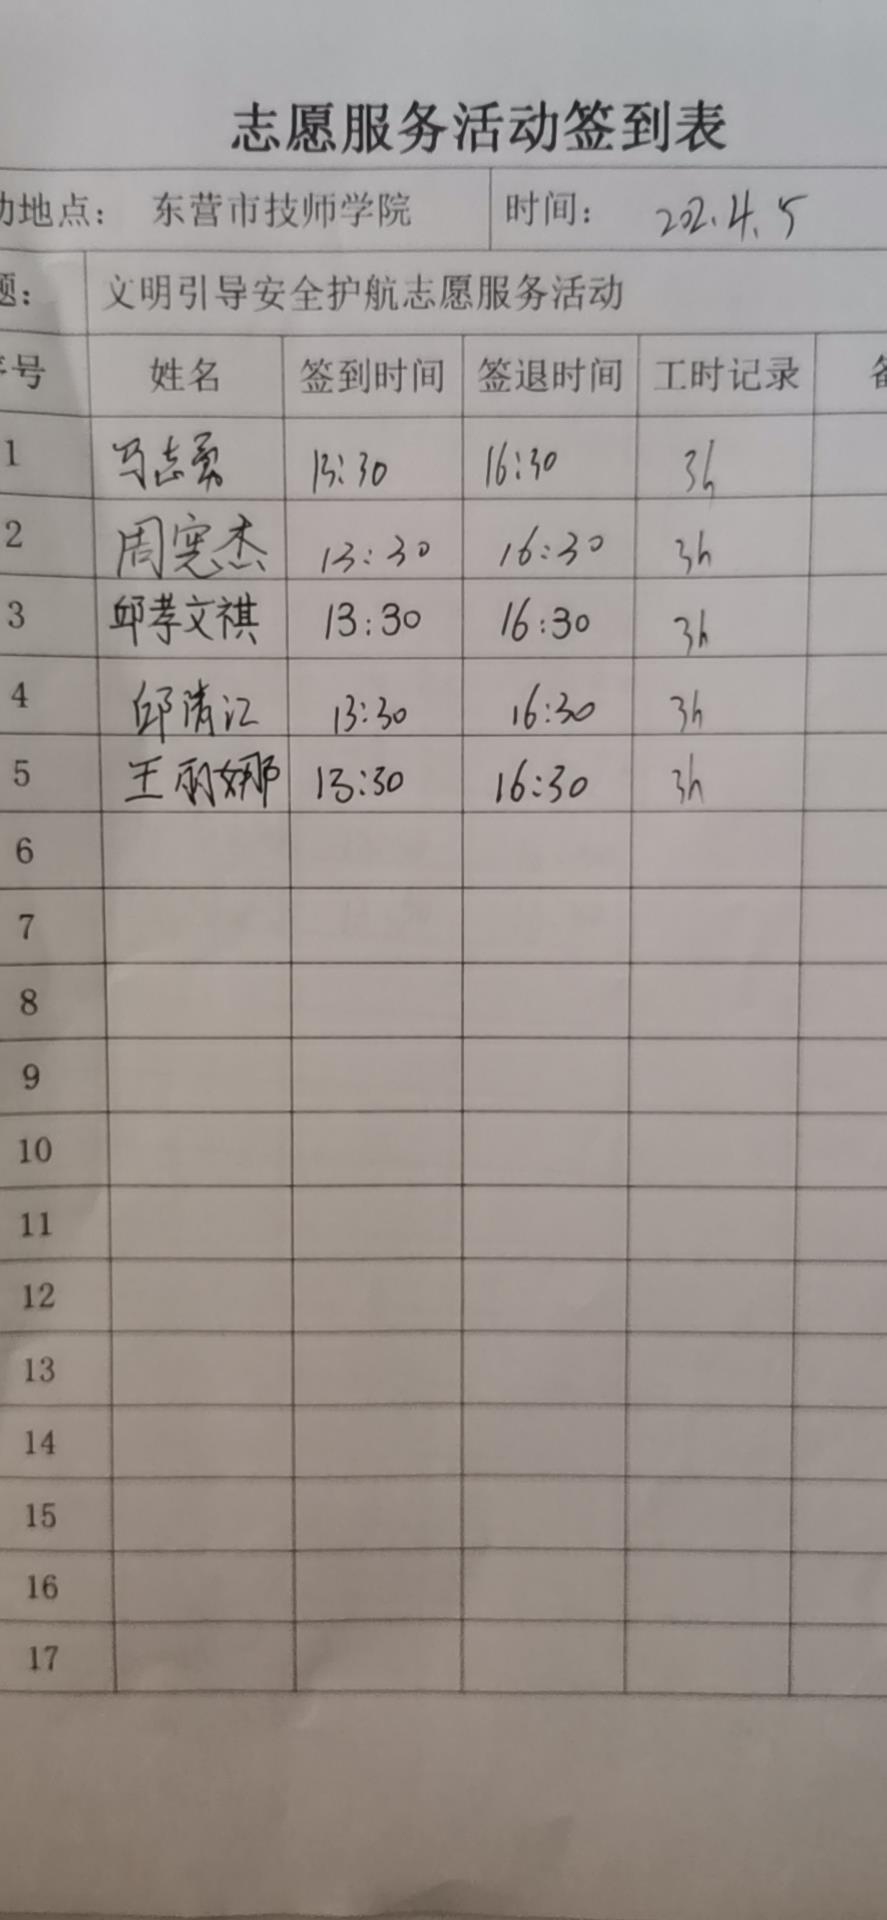 志愿服务活动签到表
动地点： 东营市技师学院 时间： 202.4.5
题： 文明引导安全护航志愿服务活动
序号 姓名 签到时间 签退时间 工时记录 备
1 马志勇 13:30 16:30 3h
2 周宪杰 13:30 16:30 3h
3 邱孝文祺 13:30 16:30 3h
4 邱清江 13:30 16:30 3h
5 王丽娜 13:30 16:30 3h
6
7
8
9
10
11
12
13
14
15
16
17